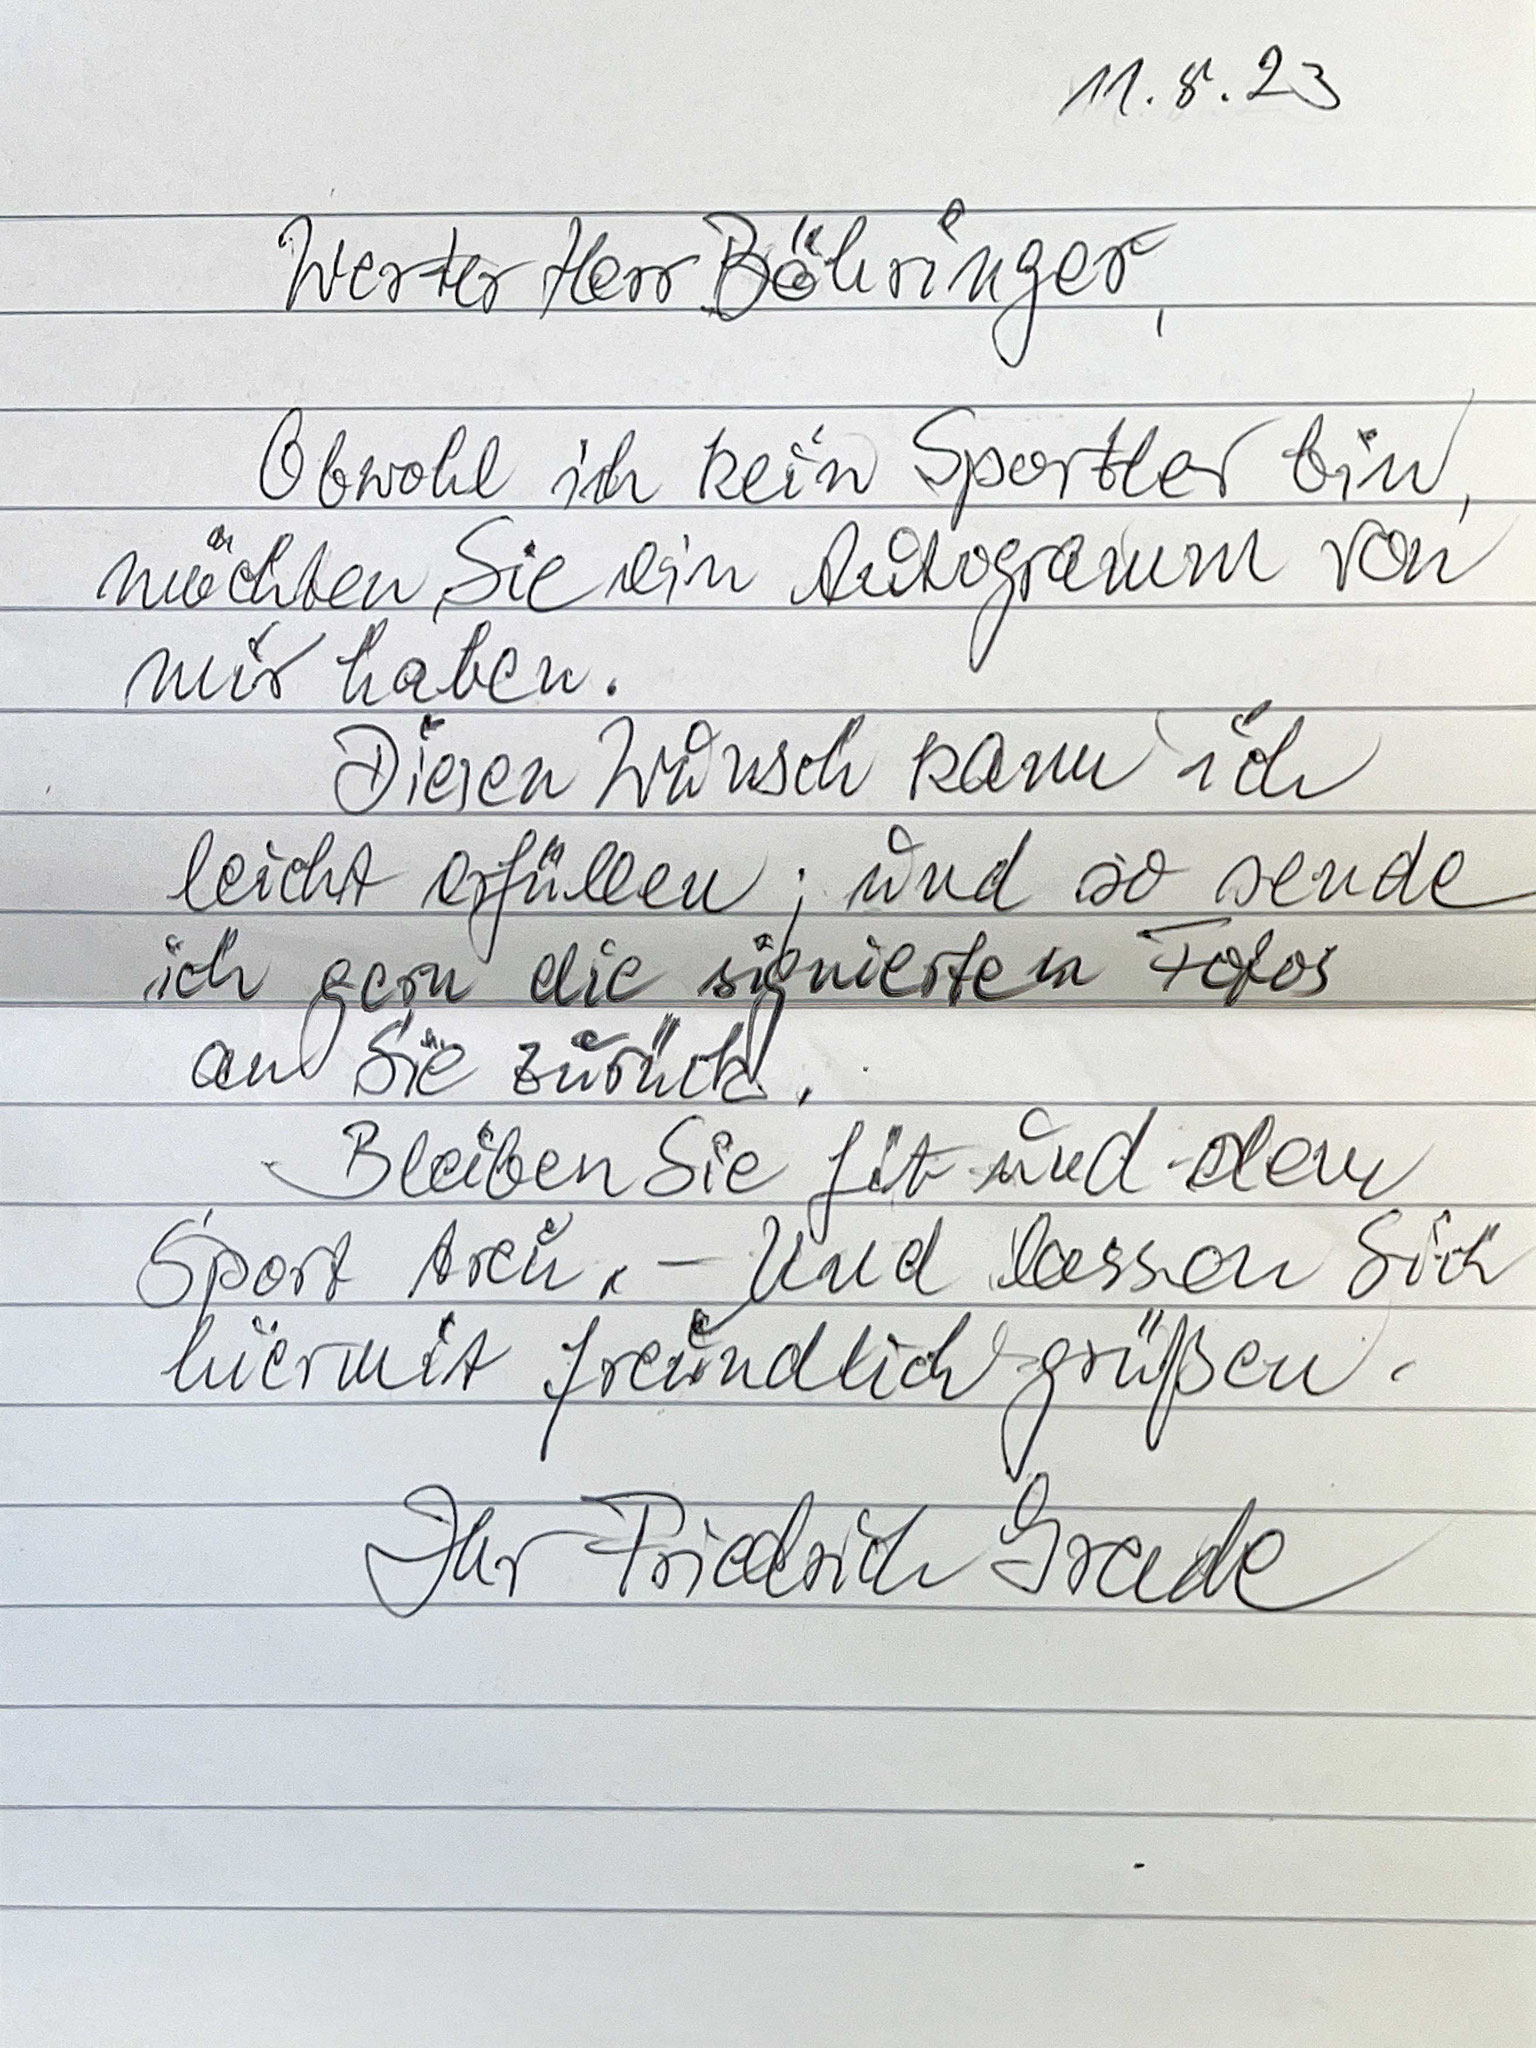 11.8.23
Werter Herr Böhringer,
Obwohl ich kein Sportler bin,
möchten Sie ein Autogramm von
mir haben.
Diesen Wunsch kann ich
leicht erfüllen; und so sende
ich gern die signierten Fotos
an Sie zurück.
Bleiben Sie fit und dem
Sport treu. – Und lassen Sich
hiermit freundlich grüßen.
Ihr Friedrich